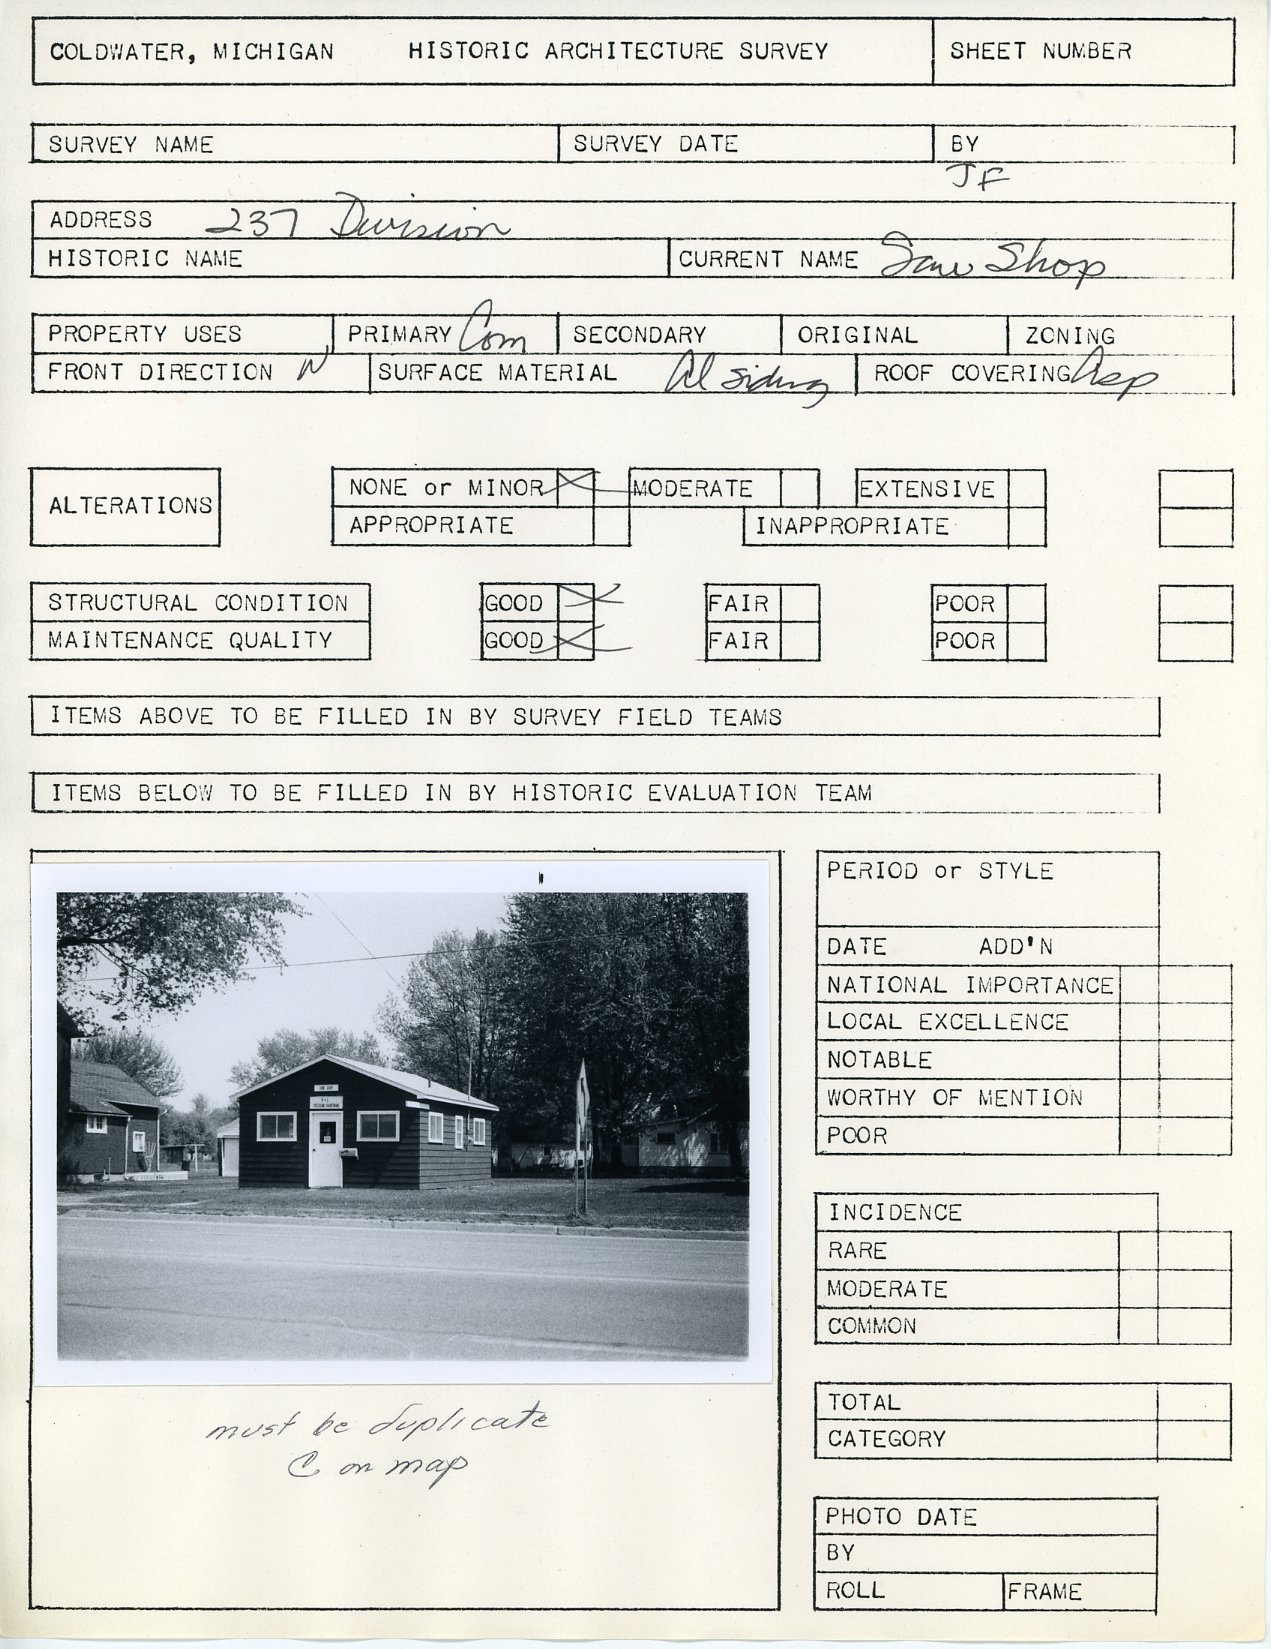 COLDWATER, MICHIGAN HISTORIC ARCHITECTURE SURVEY SHEET NUMBER
SURVEY NAME SURVEY DATE BY
JF
ADDRESS 237 Division
HISTORIC NAME CURRENT NAME Saw Shop
PROPERTY USES PRIMARY Com SECONDARY ORIGINAL ZONING
FRONT DIRECTION N SURFACE MATERIAL Al siding ROOF COVERING Asp
ALTERATIONS NONE or MINOR MODERATE EXTENSIVE
APPROPRIATE INAPPROPRIATE
STRUCTURAL CONDITION GOOD FAIR POOR
MAINTENANCE QUALITY GOOD FAIR POOR
ITEMS ABOVE TO BE FILLED IN BY SURVEY FIELD TEAMS
ITEMS BELOW TO BE FILLED IN BY HISTORIC EVALUATION TEAM
SAW SHOP
must be duplicate
C on map
PERIOD or STYLE
DATE ADD'N
NATIONAL IMPORTANCE
LOCAL EXCELLENCE
NOTABLE
WORTHY OF MENTION
POOR
INCIDENCE
RARE
MODERATE
COMMON
TOTAL
CATEGORY
PHOTO DATE
BY
ROLL FRAME